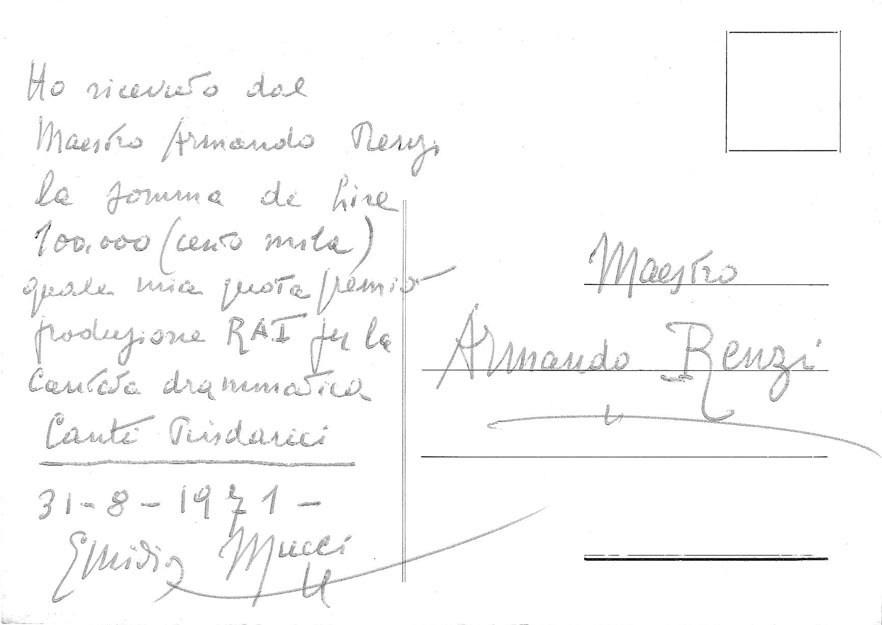 Ho ricevuto dal
Maestro Armando Renzi
la somma de Lire
100.000 (cento mila)
quale mia quota premio
produzione RAI per la
Cantata drammatica
Canti Pindarici
31-8-1971-
Emidio Mucci
Maestro
Armando Renzi